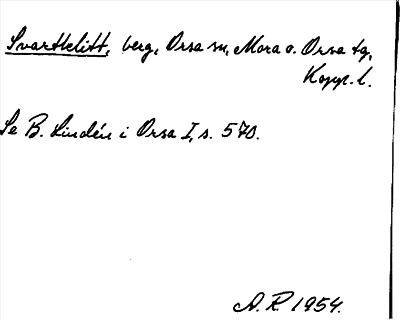 Svartklitt, berg, Orsa sn, Mora o. Orsa tg,
Kopp. l.
Se B. Lindén i Orsa I, s. 570.
A. R 1954.